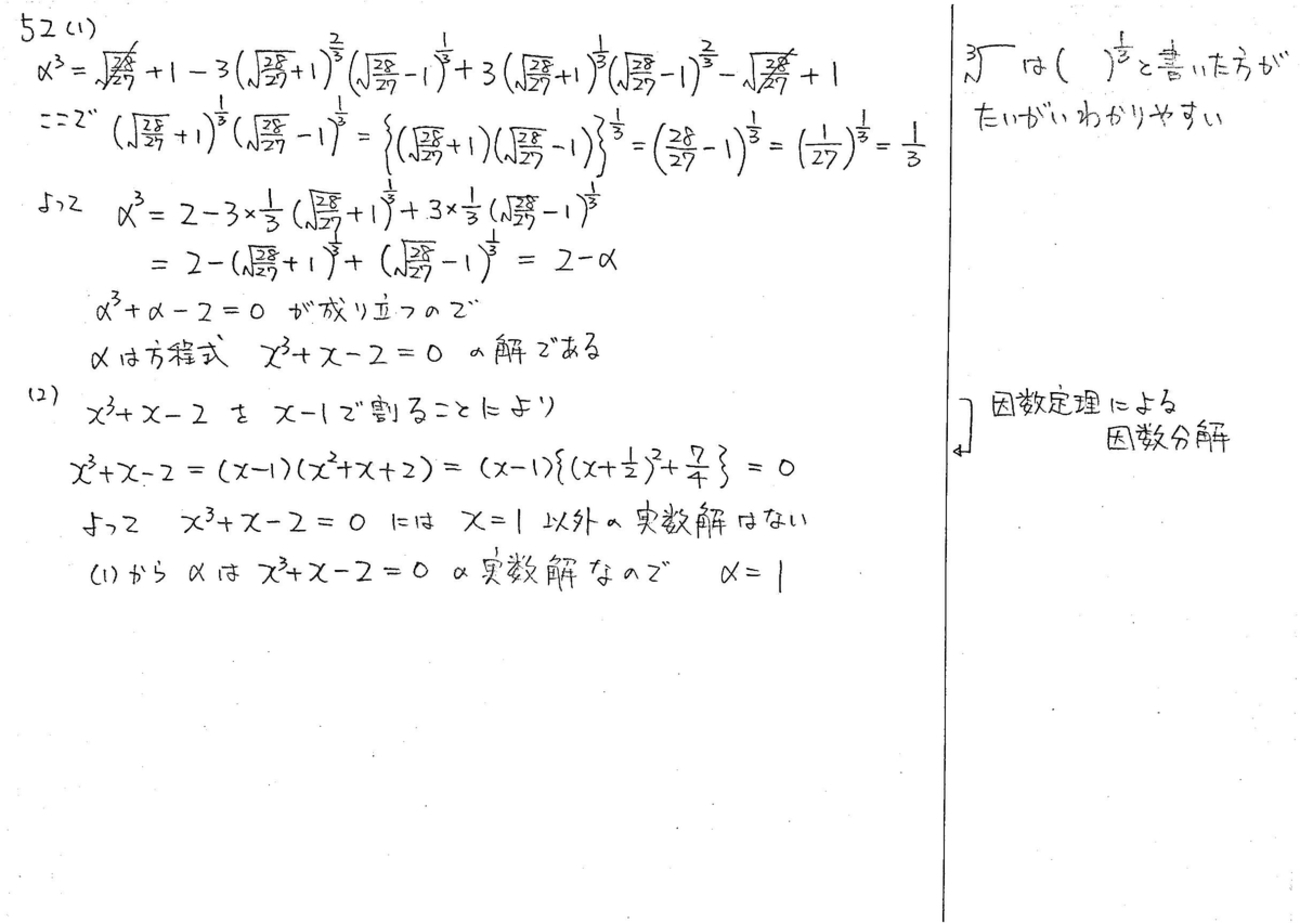 52 (1)
α³ = √(28/27) + 1 − 3(√(28/27) + 1)^(2/3) (√(28/27) − 1)^(1/3) + 3(√(28/27) + 1)^(1/3) (√(28/27) − 1)^(2/3) − √(28/27) + 1
ここで (√(28/27) + 1)^(1/3) (√(28/27) − 1)^(1/3) = {(√(28/27) + 1)(√(28/27) − 1)}^(1/3) = (28/27 − 1)^(1/3) = (1/27)^(1/3) = 1/3
よって α³ = 2 − 3 × 1/3 (√(28/27) + 1)^(1/3) + 3 × 1/3 (√(28/27) − 1)^(1/3)
= 2 − (√(28/27) + 1)^(1/3) + (√(28/27) − 1)^(1/3) = 2 − α
α³ + α − 2 = 0 が成り立つので
αは方程式 x³ + x − 2 = 0 の解である
(2) x³ + x − 2 を x − 1 で割ることにより
x³ + x − 2 = (x − 1)(x² + x + 2) = (x − 1){(x + 1/2)² + 7/4} = 0
よって x³ + x − 2 = 0 には x = 1 以外の実数解はない
(1)から αは x³ + x − 2 = 0 の実数解なので α = 1
³√ は ( )^(1/3) と書いた方が
たいがいわかりやすい
因数定理による
因数分解